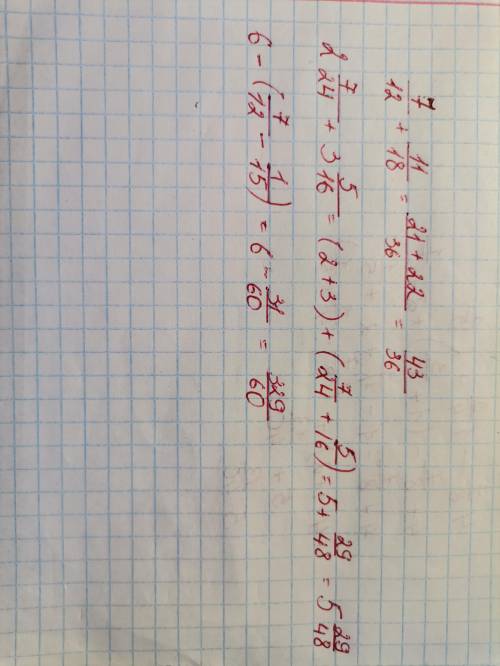 7/12 + 11/18 = (21+22)/36 = 43/36
2 7/24 + 3 5/16 = (2+3) + (7/24 + 5/16) = 5 + 29/48 = 5 29/48
6 - (7/12 - 1/15) = 6 - 31/60 = 329/60